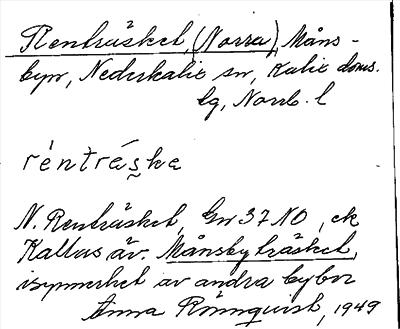 Renträsket, (Norra), Måns-
byn, Nederkalix sn, Kalix doms.
lg, Norrb. l
réntráska
N. Renträsket, Gw 37 NO, ek
Kallas äv. Månsbyträsket,
isynnerhet av andra bybor
Anna Rönnquist, 1949